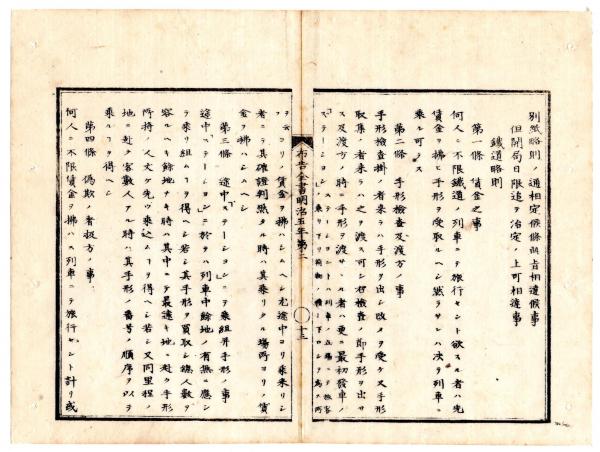 別紙略則ノ通相定候條此旨相達候事
但開局日限追テ治定ノ上可相達事
鐵道略則
第一條 賃金之事
何人ニ不限鐵道ノ列車ニテ旅行セント欲スル者ハ先
賃金ヲ拂ヒ手形ヲ受取ルヘシ然ラサレハ決テ列車ニ
乘ル可ラス
第二條 手形檢査及渡方ノ事
手形檢査掛ノ者來ラハ手形ヲ出シ改メヲ受ケ又手形
取集ノ者來ラハ之ヲ渡ス可シ若檢査ノ節手形ヲ出サ
ス及渡方ノ時ニ手形ヲ渡サヽル者ハ更ニ最初發車ノ
ステーション
ヨリノ賃金ヲ拂ハシムヘシ尤途中ヨリ乘來リシ
者ニテ其確證判然タル時ハ其乘リタル場所ヨリノ賃
金ヲ拂ハシムヘシ
布告全書明治五年第二
十三
第三條 途中ステーションニテ乘組幷手形ノ事
途中ステーションニ於テハ列車中餘地ノ有無ニ應シ
テ乘組ムコヲ得ヘシ若シ其手形ヲ買取シ總人數ヲ
容ルヘキ餘地ナキ時ハ其中ニテ最遠キ地ニ赴ク手形
所持ノ人丈ケ先ツ乘込ムコヲ得ヘシ若シ又同里程ノ
地ニ赴ク客數人アル時ハ其手形ノ番号ノ順序ヲ以テ
乘ルコヲ得ヘシ
第四條 偽欺ノ者扱方ノ事
何人ニ不限賃金ヲ拂ハス列車ニテ旅行セント計リ或